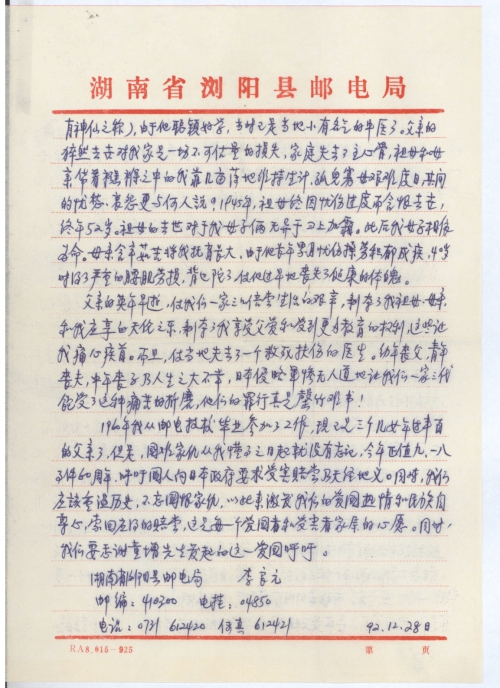 湖南省浏阳县邮电局
有神仙之称），由于他聪颖好学，当时已是当地小有名气的中医了。父亲的
猝然去世对我家是一场不可估量的损失，家庭失去了主心骨，祖母和母
亲带着襁褓之中的我靠几亩薄地维持生计，孤儿寡母艰难度日，其间
的忧愁、哀怨更与何人说？1945年，祖母终因忧伤过度而含恨去世，
终年52岁。祖母的去世对于我母子俩无异于雪上加霜。此后我母子相依
为命。母亲含辛茹苦将我抚育长大，由于他长年累月忧伤操劳积郁成疾，40岁
时得了严重的腰肌劳损，背也驼了，使他过早地丧失了健康的体魄。
父亲的英年早逝，使我们一家三代倍尝生活的艰辛，剥夺了我祖母、母亲
和我应享的天伦之乐，剥夺了我享受父爱和受到更多教育的权利，这些让
我痛心疾首。而且，使当地失去了一个救死扶伤的医生。幼年丧父，青年
丧夫，中年丧子乃人生之大不幸，日本侵略军惨无人道地让我们一家三代
饱受了这种痛苦的折磨，他们的罪行真是罄竹难书！
1960年我从邮电技校毕业参加了工作，现已是三个儿女年近半百
的父亲了，但是，国难家仇从我懂事之日起就没有忘记，今年正值九·一八
事件60周年，呼吁国人向日本政府要求受害赔偿乃天经地义。同时，我们
应该重温历史，不忘国恨家仇，以此来激发我们的爱国热情和民族自
尊心，索回应得的赔偿，这是每一个爱国者和受害者家属的心愿。同时，
我们要感谢童增先生发起的这一爱国呼吁。
湖南省浏阳县邮电局 李
邮编：410300 电挂：04850
电话：0731 612420 传真 612421 92.12.28日
RA8.015—925 第 页